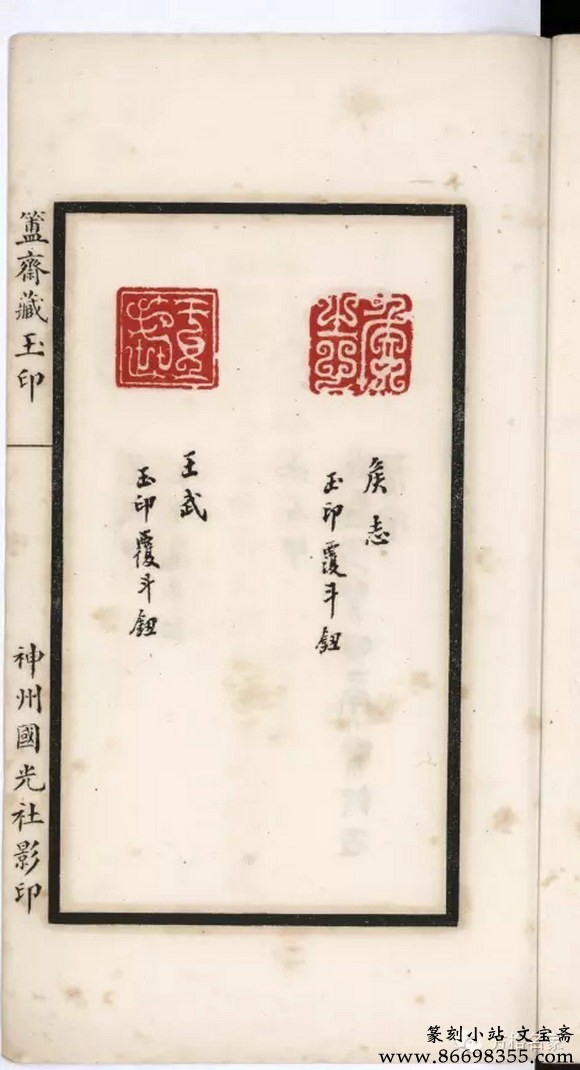 簠齋藏玉印
神州國光社影印
矦志
玉印覆斗鈕
王武
玉印覆斗鈕
篆刻小站 文宝斋
www.86698355.com